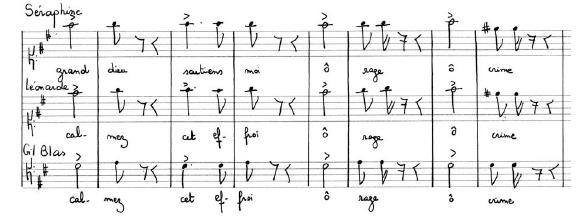 Séraphine
grand dieu soutiens ma ô rage ô crime
Léonarde
cal- mez cet ef- froi ô rage ô crime
Gil Blas
cal- mez cet ef- froi ô rage ô crime